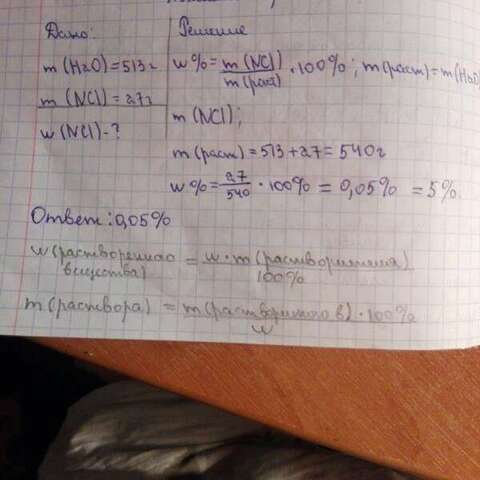 Дано:
m (H2O) = 513 г
m (NCl) = 27 г
w (NCl) - ?
Решение
w% = m (NCl) / m (раст) · 100% ; m(раст) = m(H2O)
m (NCl);
m (раст) = 513 + 27 = 540 г
w% = 27/540 · 100% = 0,05% = 5%.
Ответ: 0,05%
w (растворенного вещества) = w · m / 100%
m (раствора) = m(растворенного в) · 100% / w